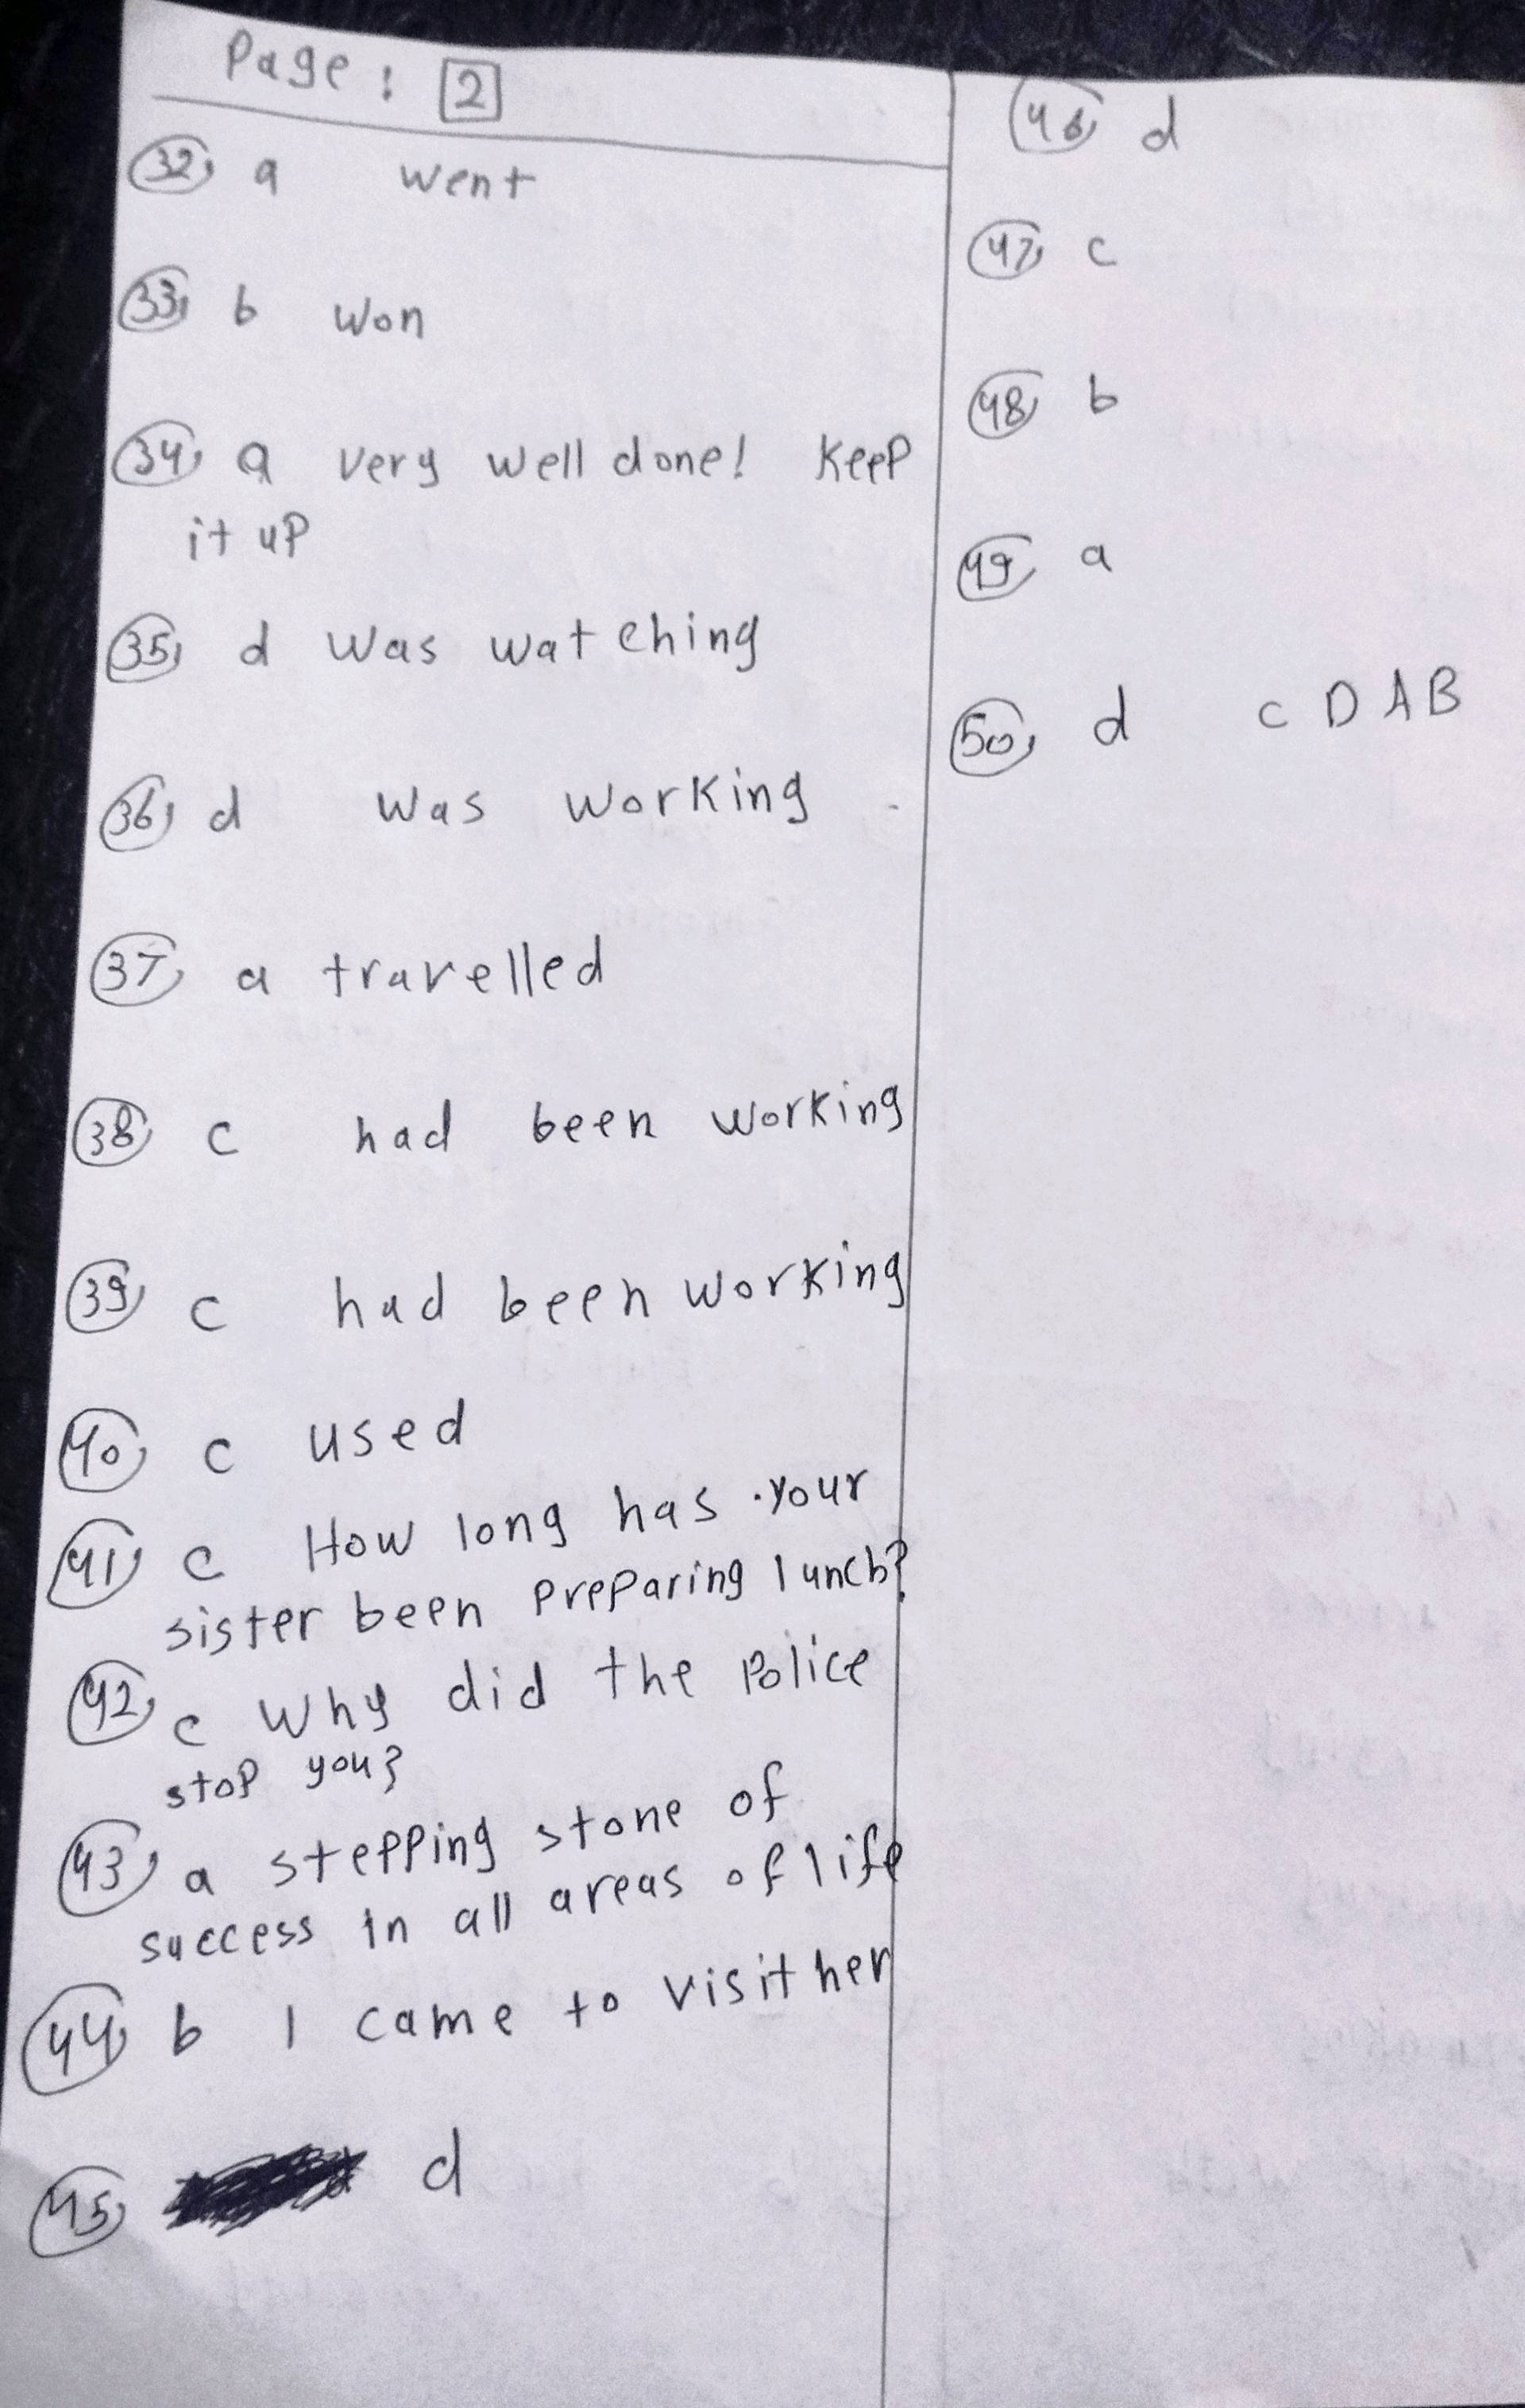 Page : 2
32, a went
33, b won
34, a very well done! Keep
it up
35, d was watching
36, d was working
37, a travelled
38, c had been working
39, c had been working
40, c used
41, c How long has your
sister been preparing lunch?
42, c Why did the Police
stop you?
43, a stepping stone of
success in all areas of life
44, b I came to visit her
45, d
46, d
47, c
48, b
49, a
50, d C D A B